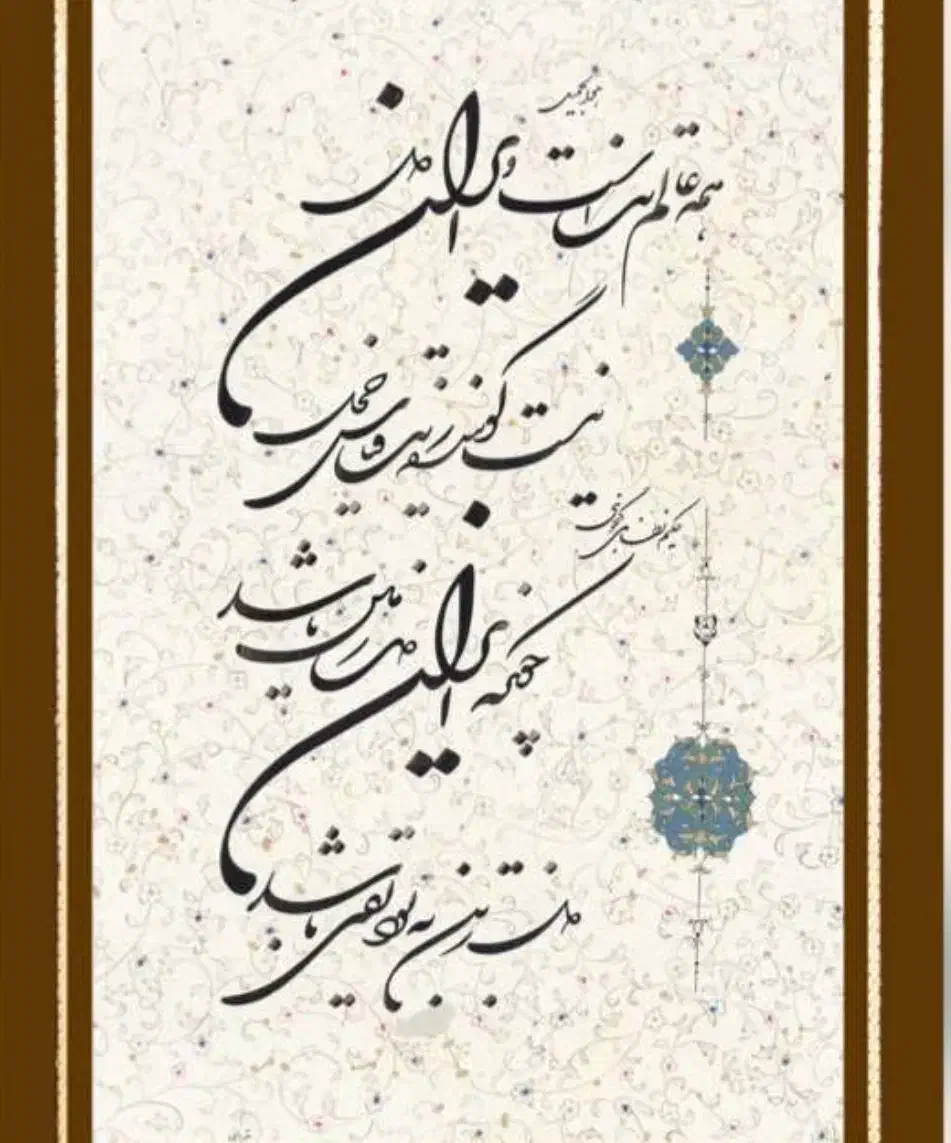 همه عالم تن است و ایران دل
نیست گوینده زین قیاس خجل
حکیم نظامی گنجوی
چونکه ایران دل زمین باشد
دل ز تن به بود یقین باشد